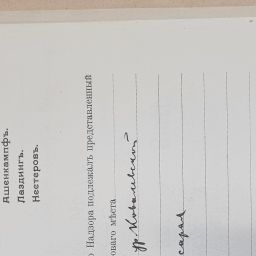 Ашенкампфъ.
Лаздингъ.
Нестеровъ.
Надзора подлежалъ представленный
оваго мѣста
Ковалевской
сарая